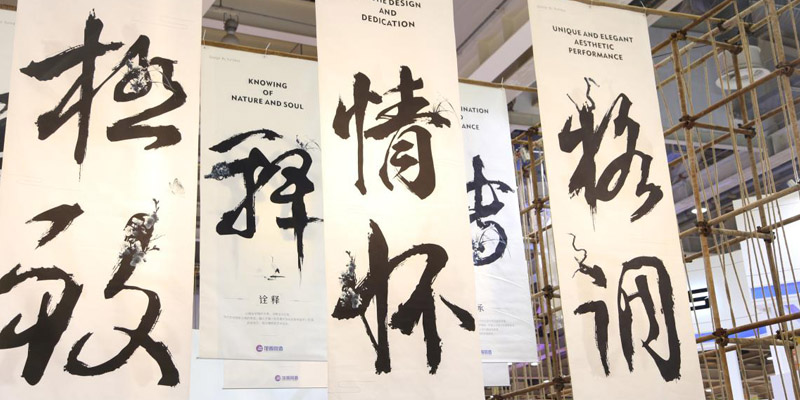 极
致
KNOWING
OF
NATURE AND SOUL
释
诠 释
THE DESIGN
AND
DEDICATION
情
怀
INATION
ANCE
承
UNIQUE AND ELEGANT
AESTHETIC
PERFORMANCE
格
调